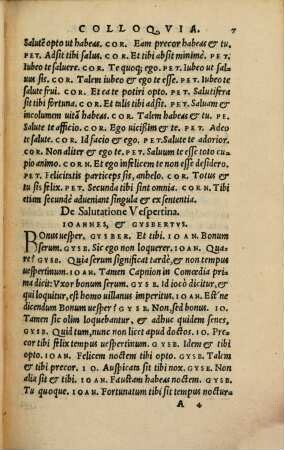 COLLOQVIA. 7
Salutē opto ut habeas. COR. Eam precor habeas & tu.
PET. Adsit tibi salus. COR. Et tibi absit minimè. PET.
Iubeo te saluere. COR. Te quoq; ego. PET. Iubeo ut sal-
uus sis. COR. Talem iubeo & ego te esse. PET. Iubeo te
salute frui. COR. Et ea te potiri opto. PET. Salutifera
sit tibi fortuna. COR. Et talis tibi adsit. PET. Saluam &
incolumem uitā habeas. COR. Talem habeas & tu. PE.
Salute te afficio. COR. Ego uicißim & te. PET. Adeo
te salute. COR. Id facio & ego. PET. Salute te adorior.
COR. Non aliter & ego te. PET. Saluum esse toto cu-
pio animo. COR. Et ego infelicem te non esse desidero.
PET. Felicitatis particeps sis, anhelo. COR. Totus &
tu sis felix. PET. Secunda tibi sint omnia. CORN. Tibi
etiam secundè adueniant singula & ex sententia.
De Salutatione Vespertina.
IOANNES, & GYSBERTVS.
Bonus uesper. GYSBER. Et tibi. IOAN. Bonum
serum. GYSB. Sic ego non loquerer. IOAN. Qua-
re? GYSB. Quia serum significat tardè, & non tempus
uespertinum. IOAN. Tamen Capnion in Comœdia pri
ma dicit: Vxor bonum serum. GYSB. Id iocò dicitur, &
qui loquitur, est homo uillanus imperitus. IOAN. Est'ne
dicendum Bonum uesper? GYSB. Non, sed bonus. IO.
Tamen sic olim loquebantur, & adhuc quidem senes,
GYSB. Quid tum, nunc non licet apud doctos. IO. Pre-
cor tibi felix tempus uespertinum. GYSB. Idem & tibi
opto. IOAN. Felicem noctem tibi opto. GYSB. Talem &
tibi precor. IO. Auspicata sit tibi nox. GYSB. Non
alia sit & tibi. IOAN. Faustam habeas noctem. GYSB.
Tu quoque. IOAN. Fortunatum tibi sit tempus noctur-
A 4